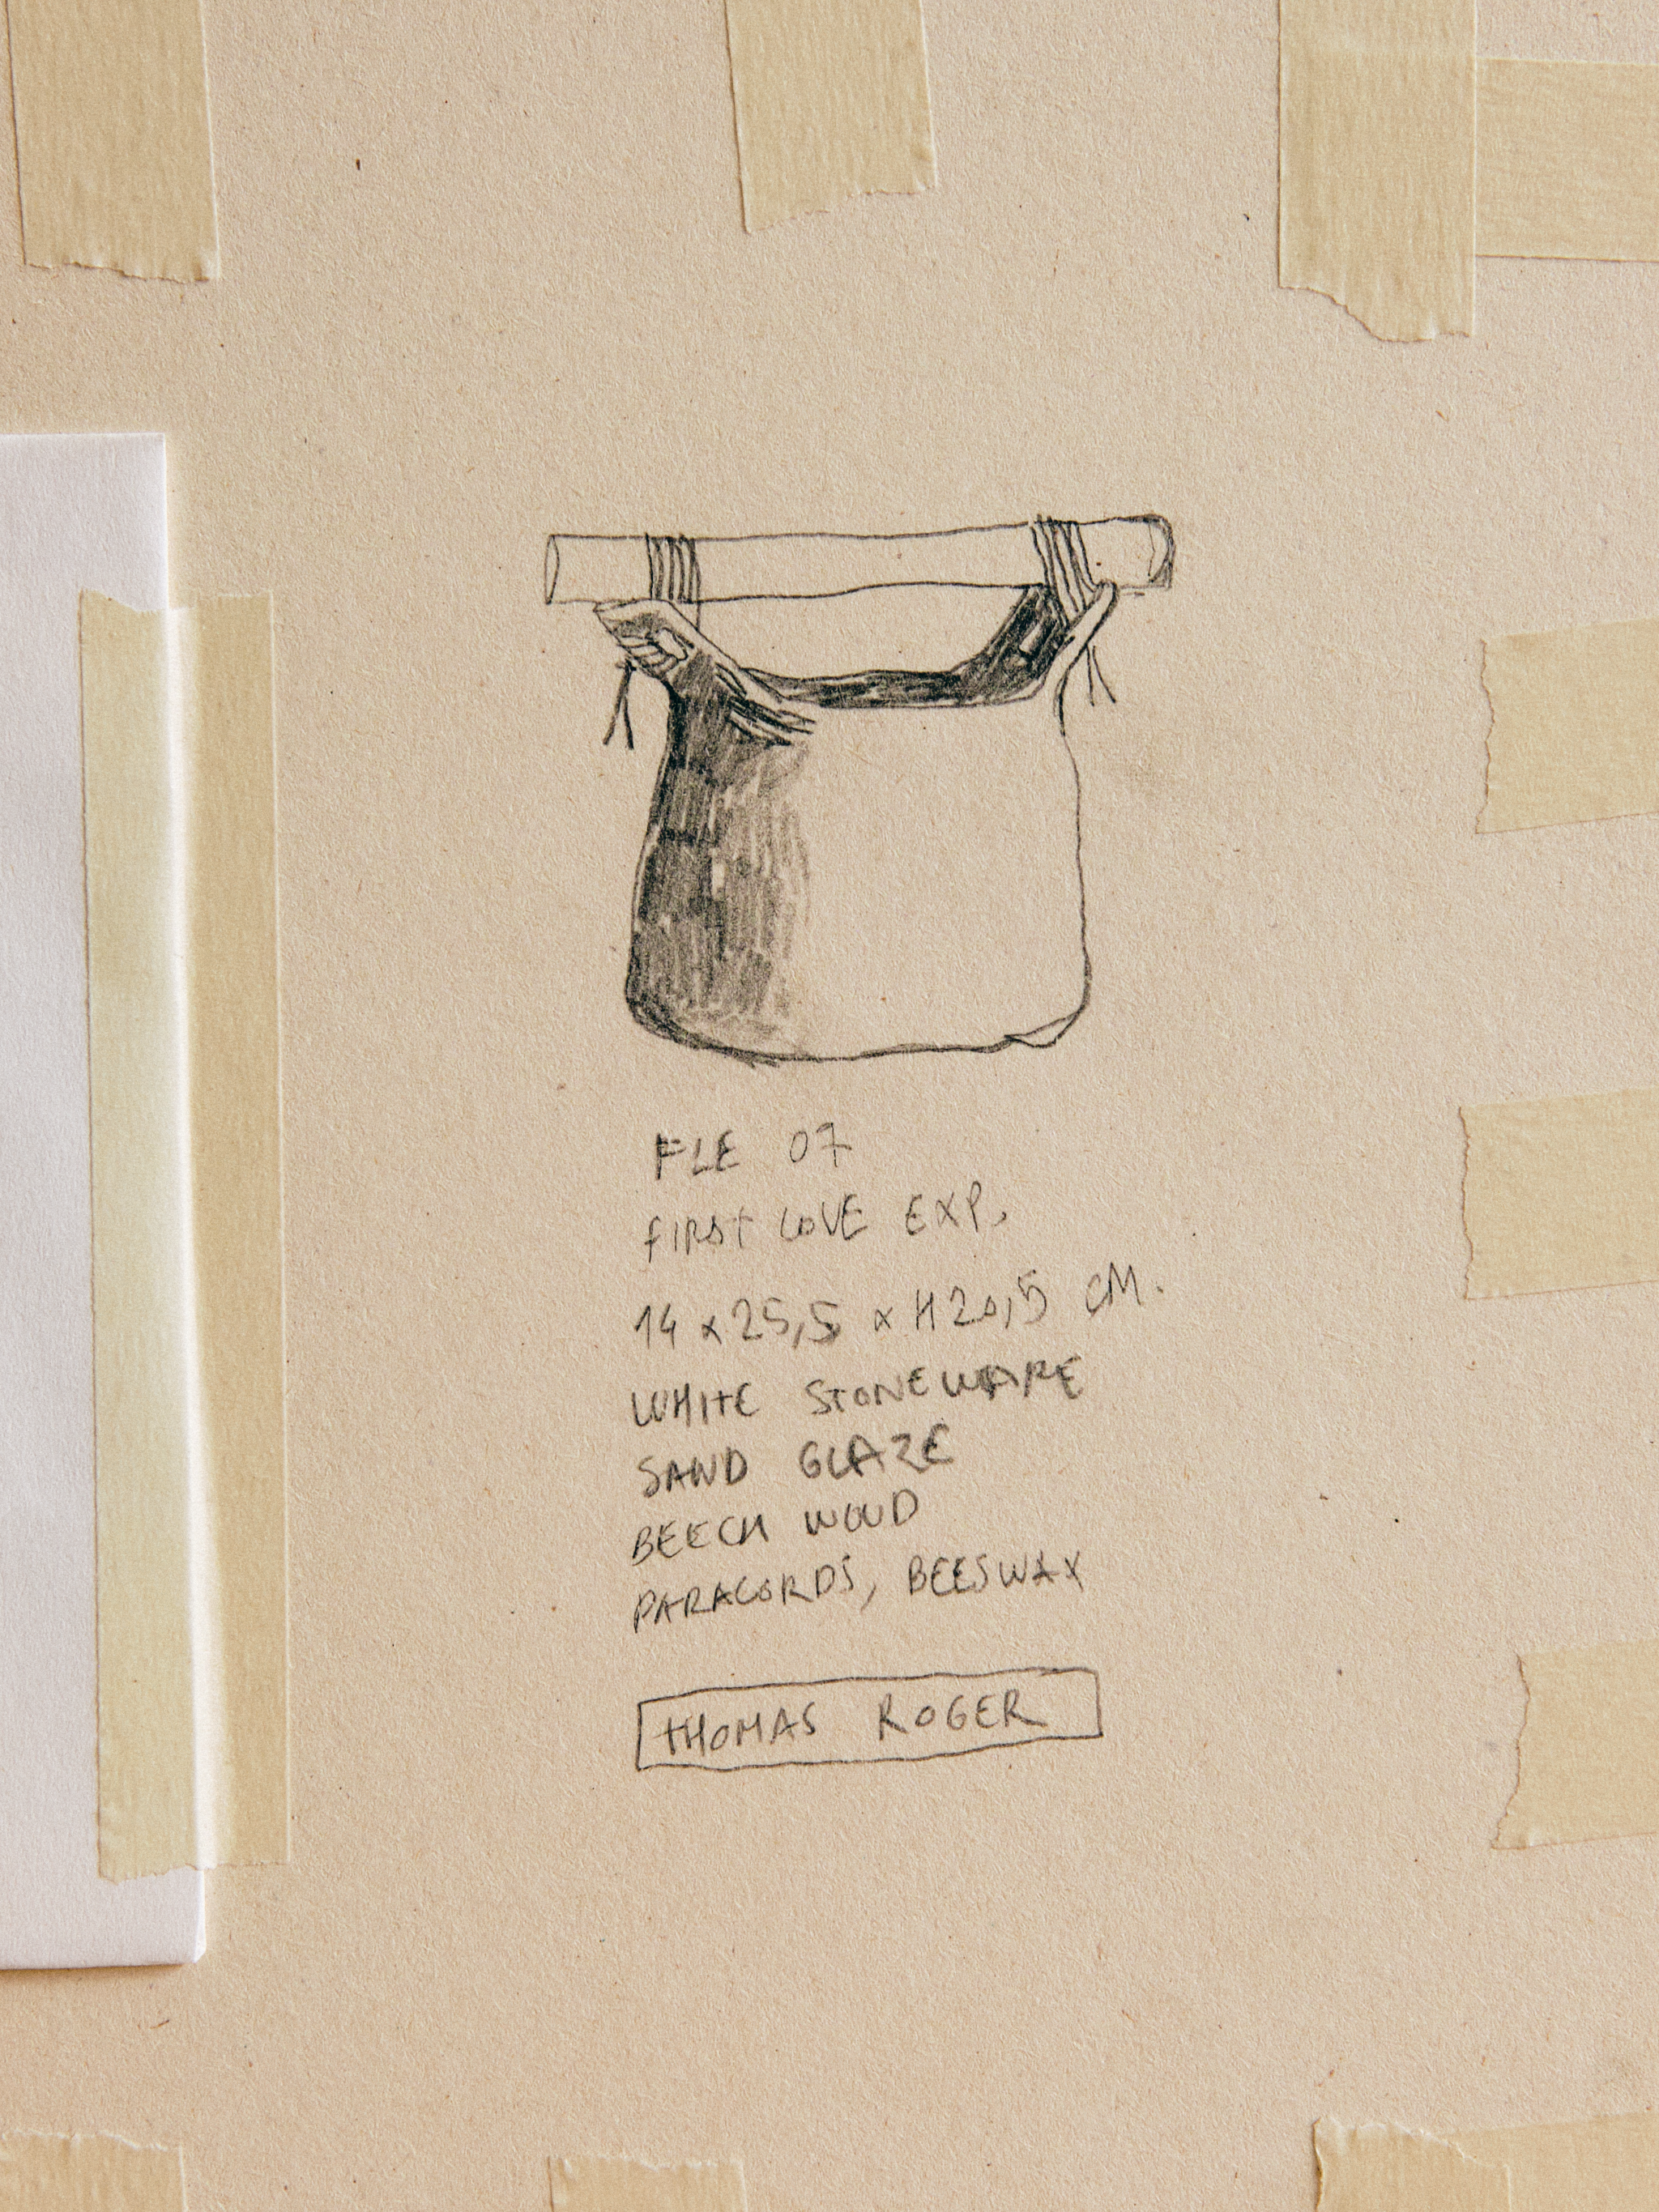 FLE 07
FIRST LOVE EXP.
14 x 25,5 x H20,5 CM.
WHITE STONEWARE
SAND GLAZE
BEECH WOOD
PARACORDS, BEESWAX
THOMAS ROGER